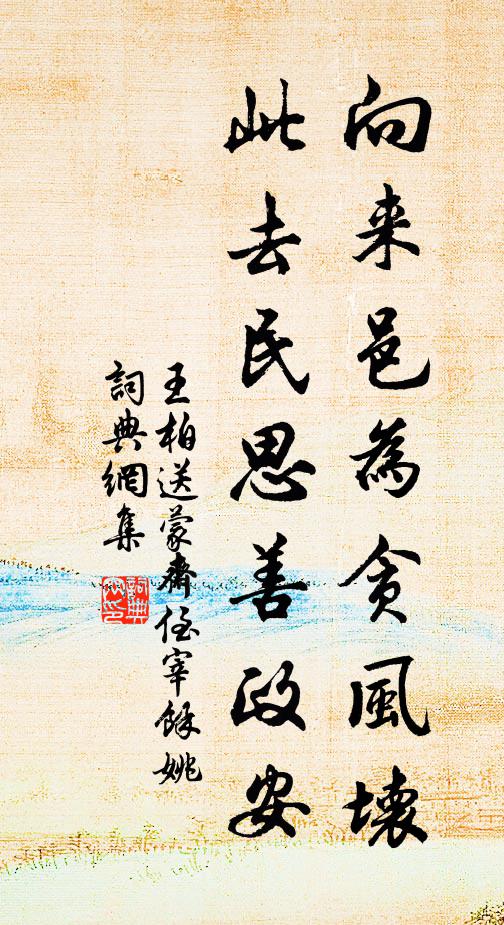 向来邑為貪風壞
此去民思善政安
王柏送蒙齋侄宰餘姚
詞典網集